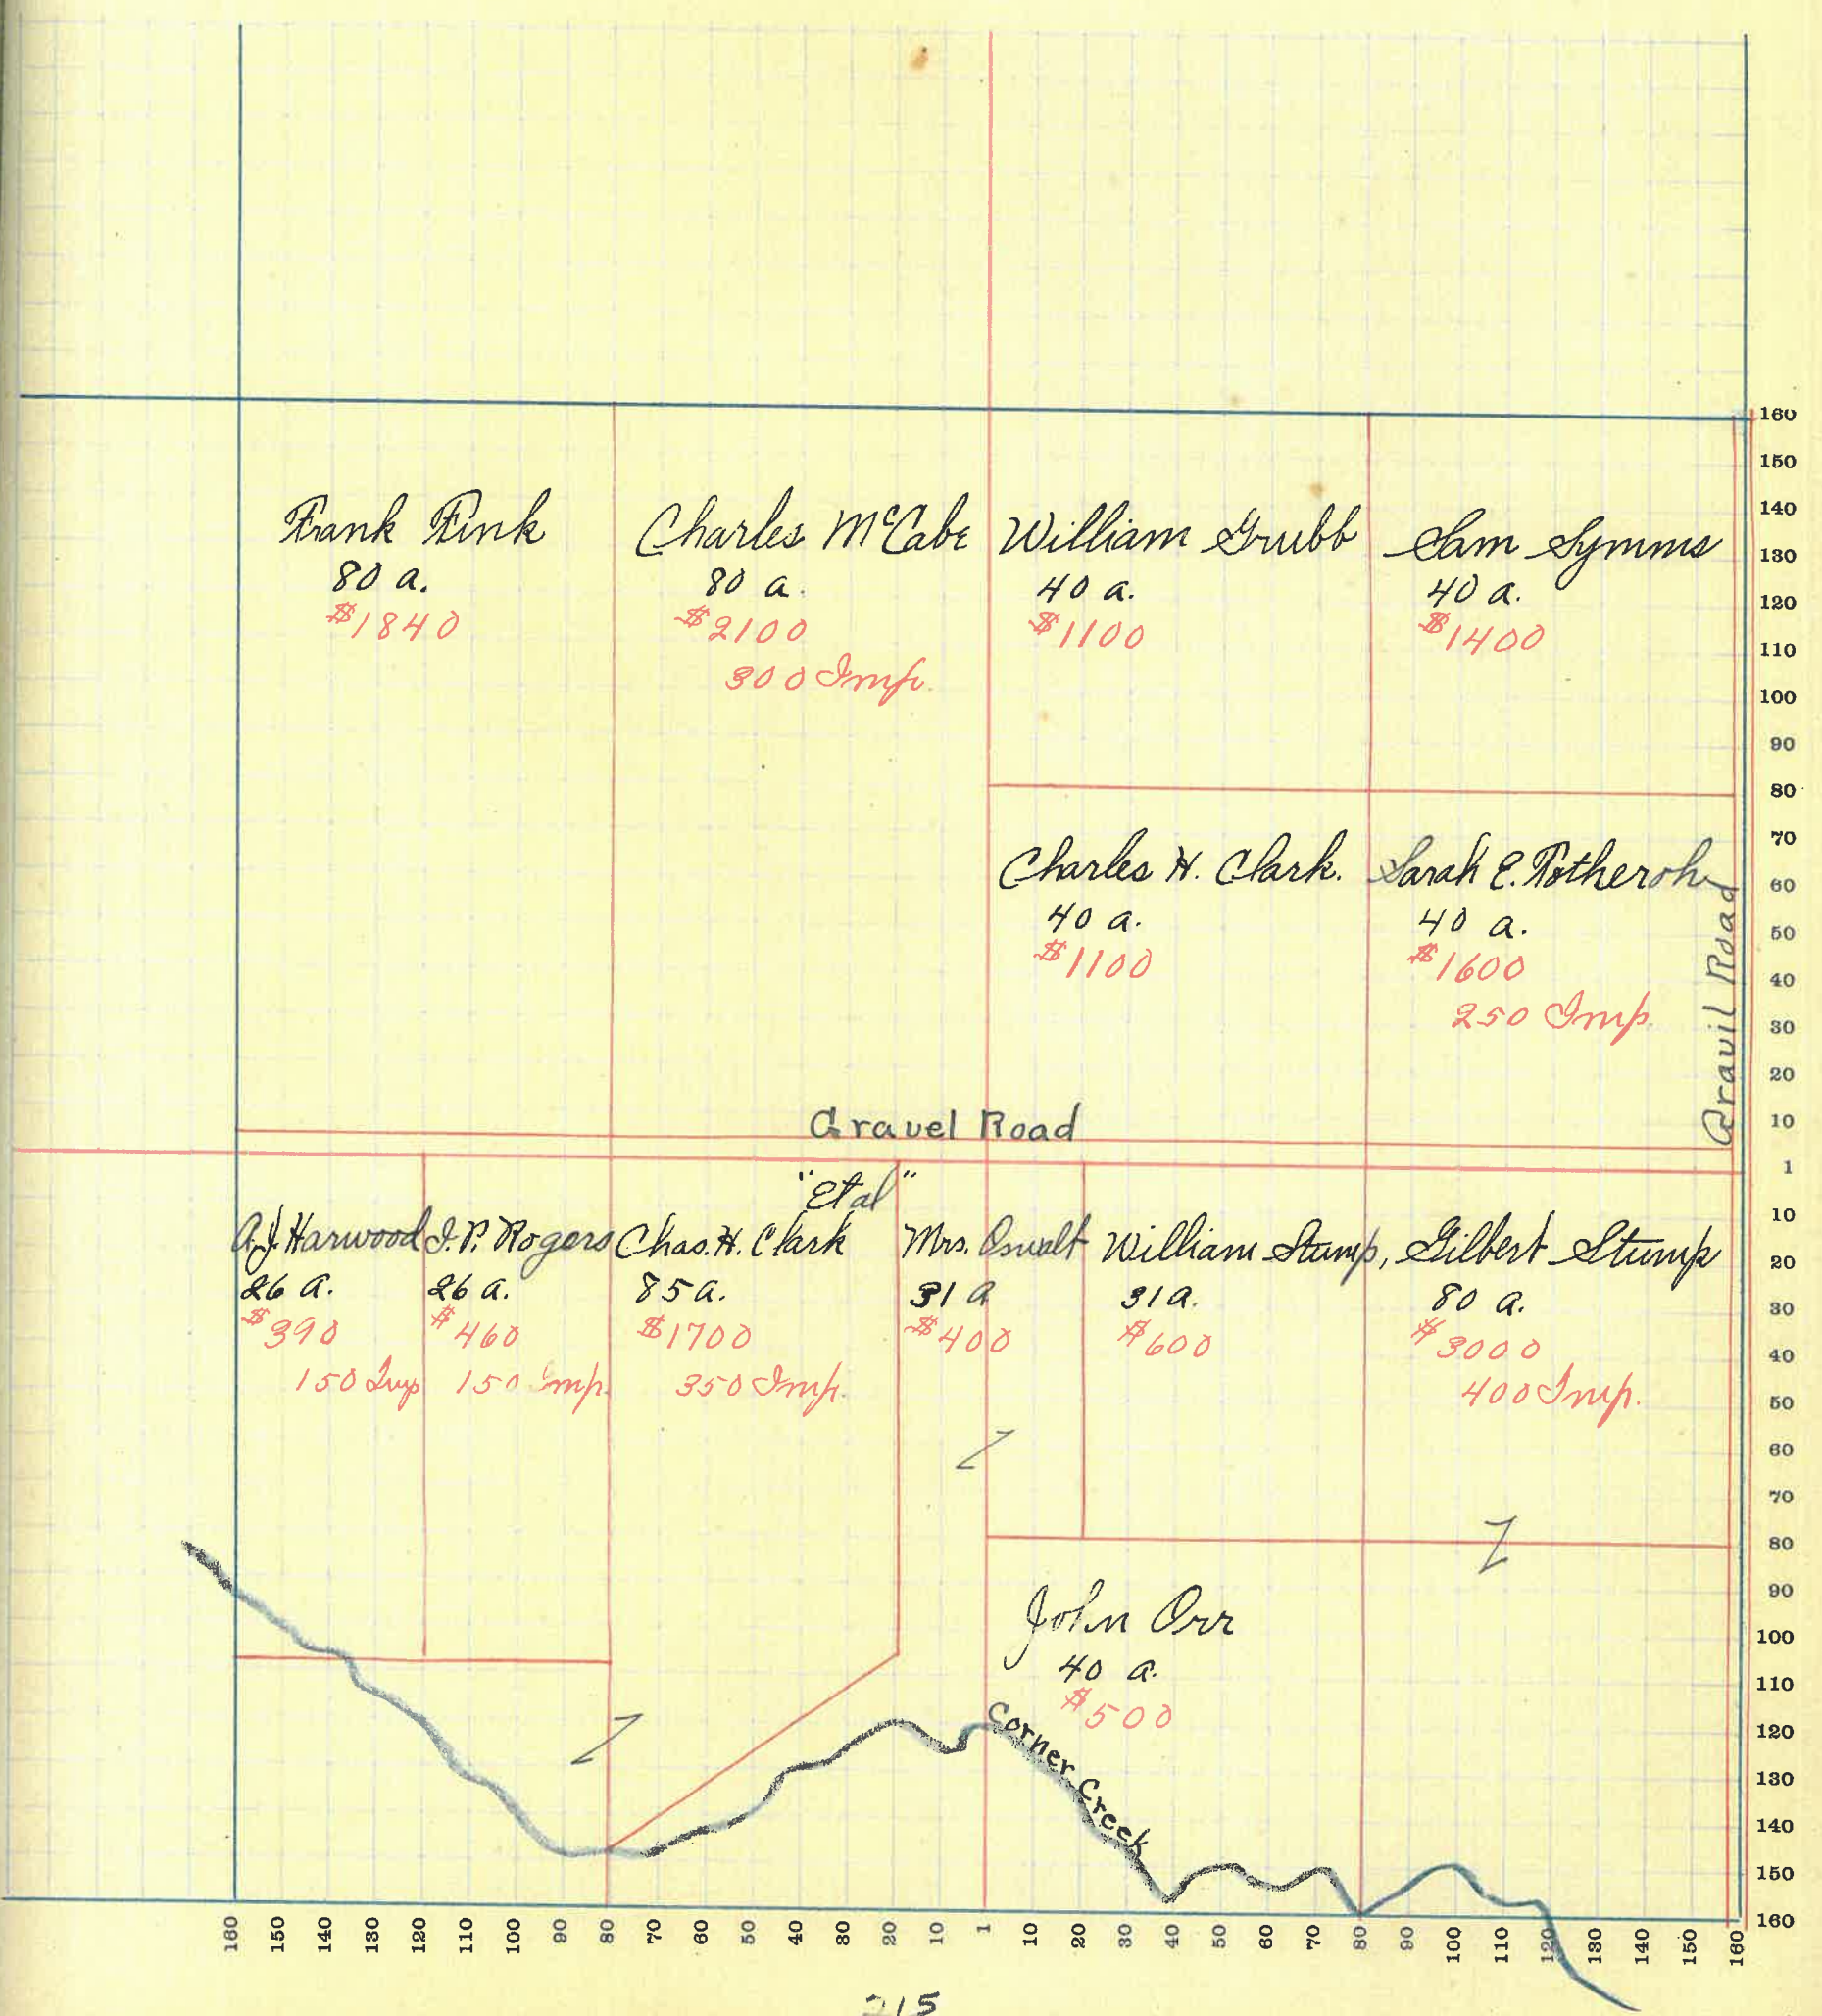 Frank Fink
80 a.
$1840
Charles McCabe
80 a.
$2100
300 Imp.
William Grubb
40 a.
$1100
Sam Symms
40 a.
$1400
Charles H. Clark.
40 a.
$1100
Sarah E. Totheroh
40 a.
$1600
250 Imp.
Gravil Road
Gravel Road
A.J. Harwood
26 a.
$390
150 Imp
I.P. Rogers
26 a.
$460
150 Imp.
"Etal"
Chas. H. Clark
85 a.
$1700
350 Imp.
Mrs. Oswalt
31 a
$400
William Stump,
31 a.
$600
Gilbert Stump
80 a.
$3000
400 Imp.
John Orr
40 a.
$500
Corner Creek
160
150
140
130
120
110
100
90
80
70
60
50
40
30
20
10
1
10
20
30
40
50
60
70
80
90
100
110
120
130
140
150
160
160 150 140 130 120 110 100 90 80 70 60 50 40 30 20 10 1 10 20 30 40 50 60 70 80 90 100 110 120 130 140 150 160
215